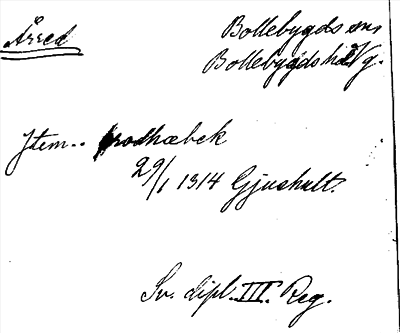 Årred
Bollebygds sn,
Bollebygds hd Vg.
Jtem.. rodhæbek
29/1 1314 Gjushult.
Sv. dipl. III. Reg.